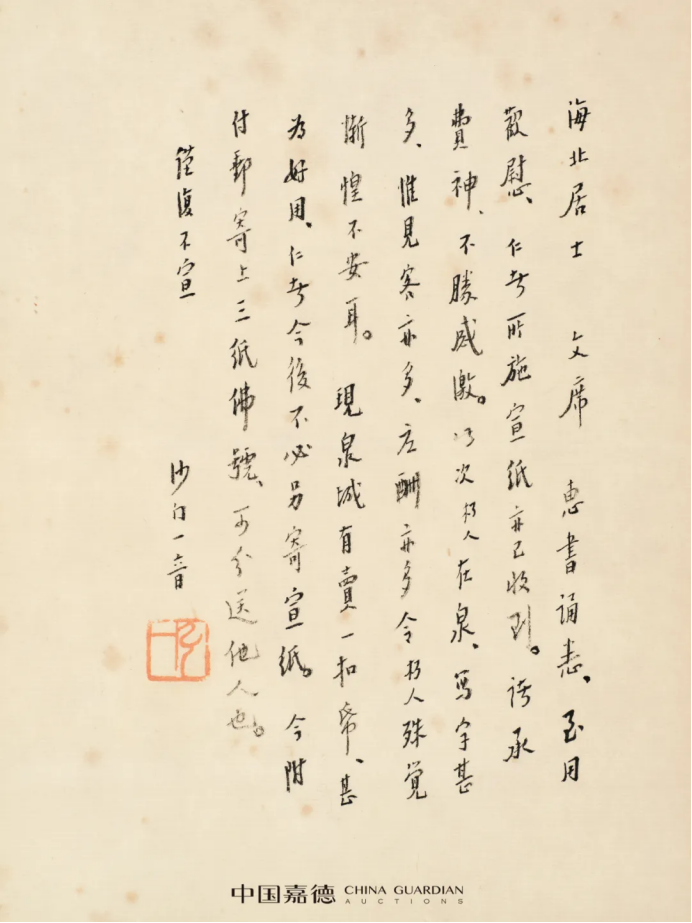 海北居士 文席 惠書誦悉、至用
歡慰、仁者所施宣紙亦已收到。諸承
費神、不勝感激。此次朽人在泉、寫字甚
多、惟見客亦多、應酬亦多令朽人殊覺
慚惶不安耳。現泉城有賣一扣帋、甚
為好用、仁者今後不必另寄宣紙。今附
付郵寄上三紙佛號、可分送他人也。
謹復不宣
沙門一音
中国嘉德 CHINA GUARDIAN
AUCTIONS